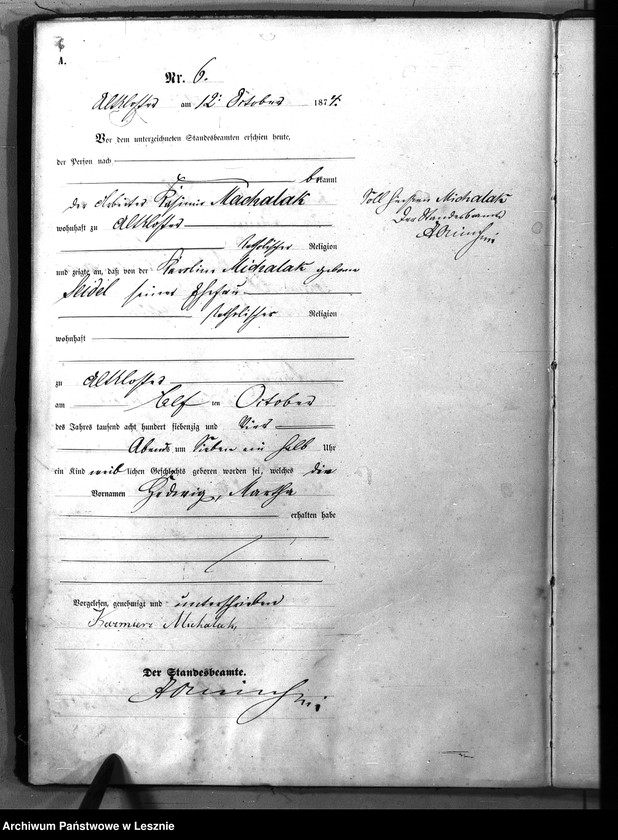 A.
Nr. 6.
Altkloster am 12. October 1874.
Vor dem unterzeichneten Standesbeamten erschien heute,
der Person nach
bekannt
der Arbeiter Kasimir Machalak
wohnhaft zu Altkloster
katholischer Religion
und zeigte an, daß von der Karoline Michalak geborene
Seidel seiner Ehefrau
katholischer Religion
wohnhaft
zu Altkloster
am Elf ten October
des Jahres tausend acht hundert siebenzig und Vier
Abends um Sieben ein halb Uhr
ein Kind weib lichen Geschlechts geboren worden sei, welches die
Vornamen Hedwig, Martha
erhalten habe
Vorgelesen, genehmigt und unterschrieben
Kazmierz Michalak,
Der Standesbeamte.
Soll heißen Michalak
Der Standesbeamte
Archiwum Państwowe w Lesznie